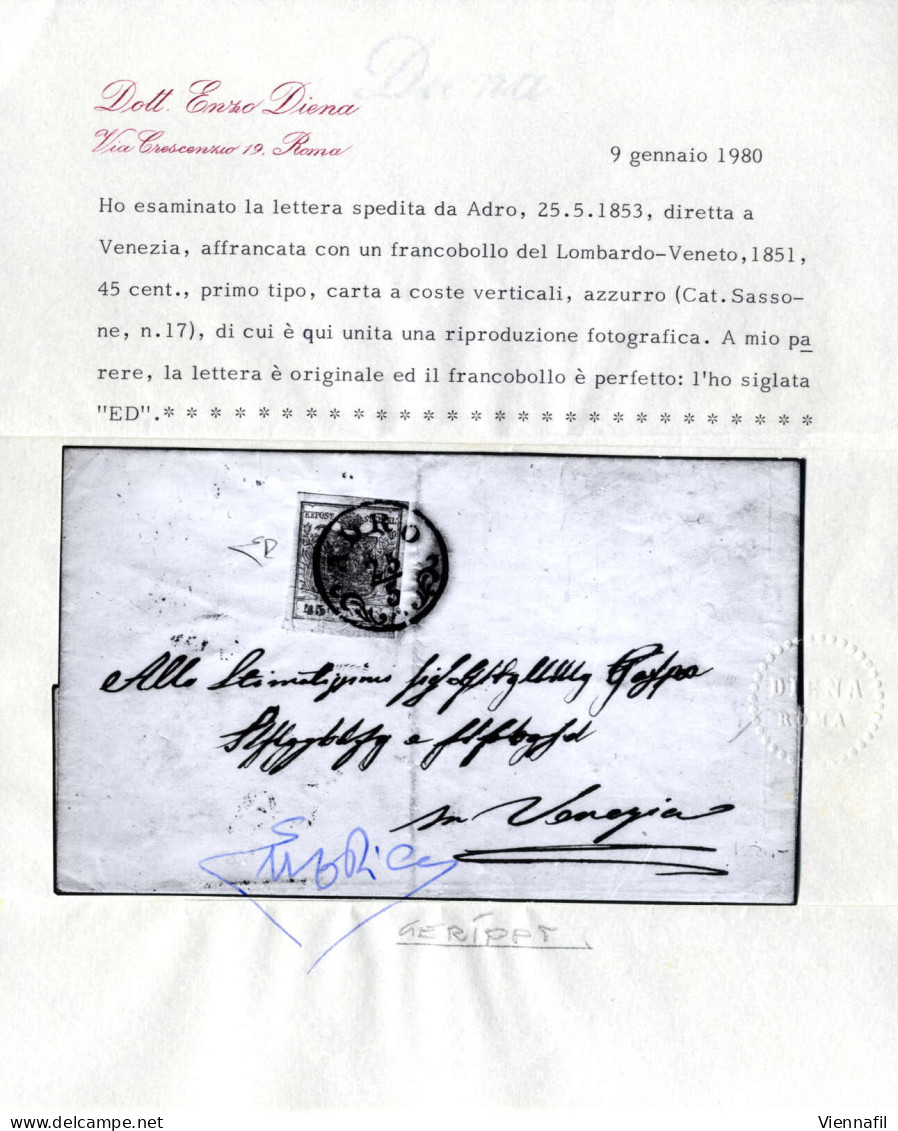 Diena
Dott. Enzo Diena
Via Crescenzio 19. Roma
9 gennaio 1980
Ho esaminato la lettera spedita da Adro, 25.5.1853, diretta a
Venezia, affrancata con un francobollo del Lombardo-Veneto,1851,
45 cent., primo tipo, carta a coste verticali, azzurro (Cat.Sasso-
ne, n.17), di cui è qui unita una riproduzione fotografica. A mio pa
rere, la lettera è originale ed il francobollo è perfetto: l'ho siglata
"ED".* * * * * * * * * * * * * * * * * * * * * * * * * * * *
ED
45
Alla
DIENA
ROMA
in Venezia
GERIPPT
Viennafil